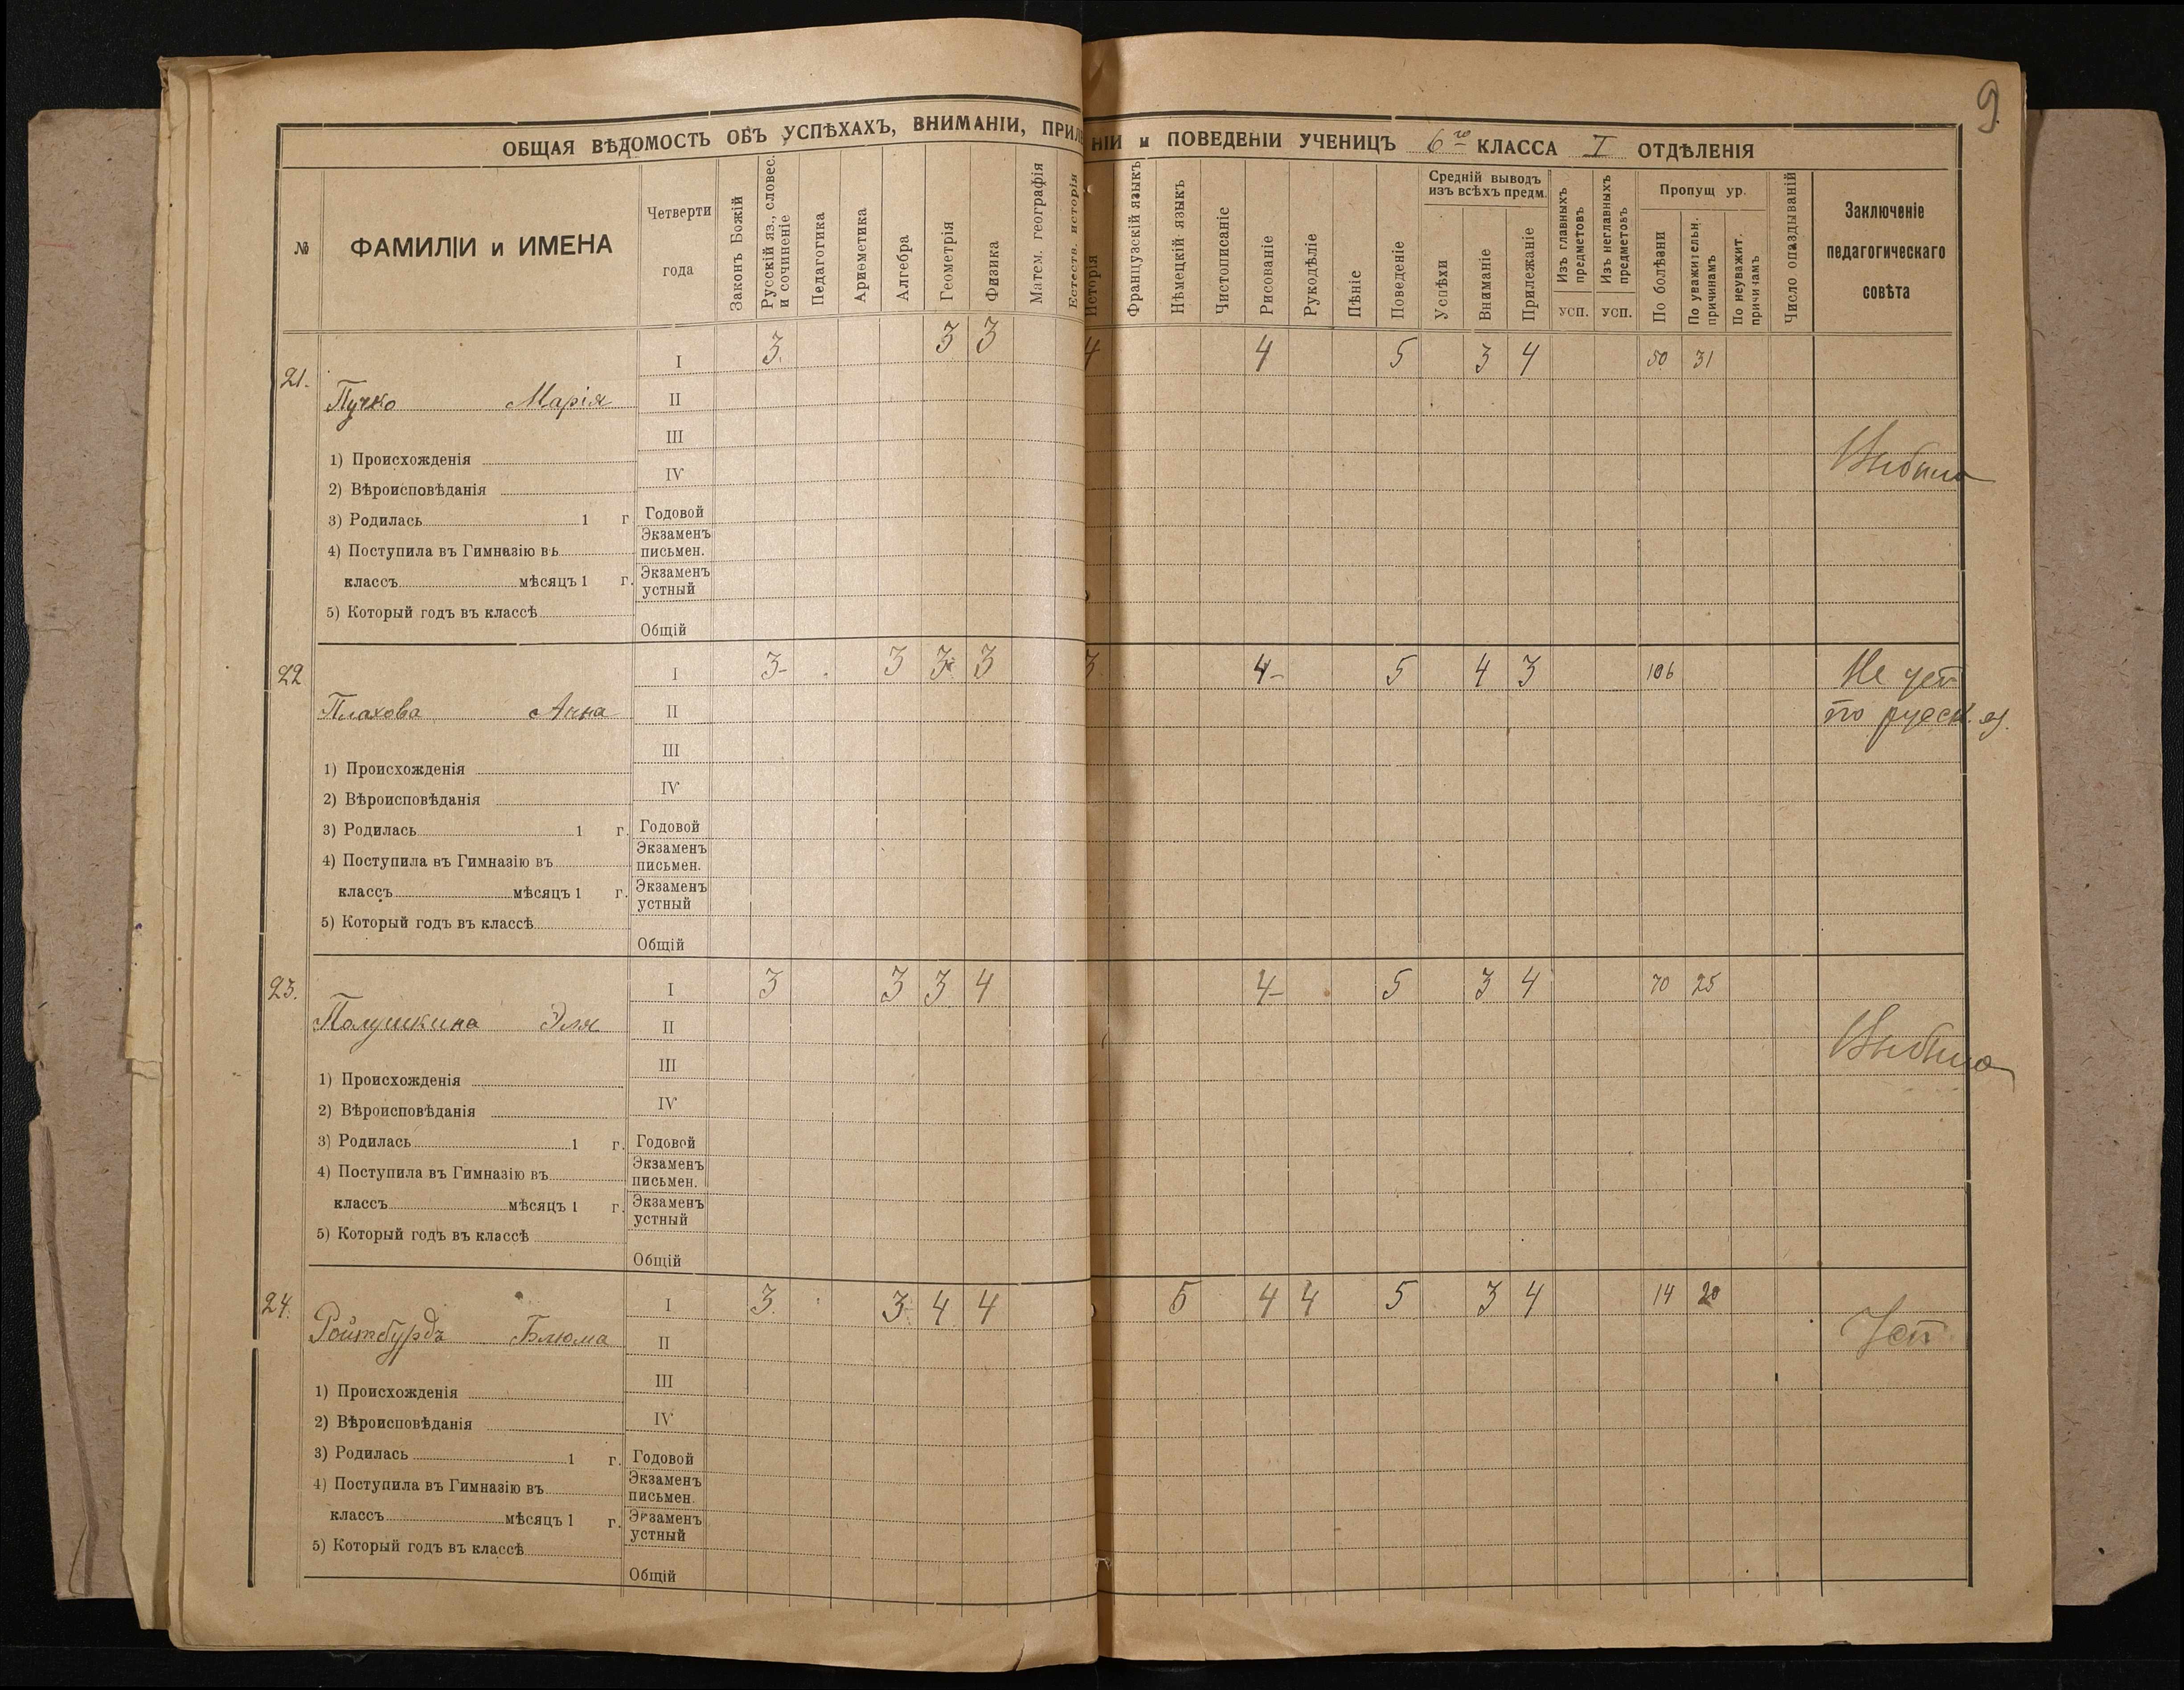 9
ОБЩАЯ ВѢДОМОСТЬ ОБЪ УСПѢХАХЪ, ВНИМАНІИ, ПРИЛЕ НІИ и ПОВЕДЕНІИ УЧЕНИЦЪ 6го КЛАССА I ОТДѢЛЕНІЯ
№ ФАМИЛІИ и ИМЕНА Четверти года Законъ Божій Русскій яз., словес. и сочиненіе Педагогика Ариѳметика Алгебра Геометрія Физика Матем. географія Естеств. исторія Исторія Французскій языкъ Нѣмецкій языкъ Чистописаніе Рисованіе Рукодѣліе Пѣніе Поведеніе Средній выводъ изъ всѣхъ предм. Успѣхи Вниманіе Прилежаніе Изъ главныхъ предметовъ усп. Изъ неглавныхъ предметовъ усп. Пропущ ур. По болѣзни По уважительн. причинамъ По неуважит. причинамъ Число опаздываній Заключеніе педагогическаго совѣта
21. I 3. 3 3 4 4 5 3 4 50 31
Пучко Марія II
III
Выбыла
1) Происхожденія
IV
2) Вѣроисповѣданія
3) Родилась 1 г Годовой
Экзаменъ письмен.
4) Поступила въ Гимназію въ
классъ мѣсяцъ 1 г. Экзаменъ устный
5) Который годъ въ классѣ
Общій
22 I 3- 3 3 3 3 4- 5 4 3 106 Не усп
Плахова Анна II по русск. яз.
III
1) Происхожденія
IV
2) Вѣроисповѣданія
3) Родилась 1 г. Годовой
Экзаменъ письмен.
4) Поступила въ Гимназію въ
классъ мѣсяцъ 1 г. Экзаменъ устный
5) Который годъ въ классѣ
Общій
23. I 3 3 3 4 4- 5 3 4 70 25
Полушкина Эля II
Выбыла
III
1) Происхожденія
IV
2) Вѣроисповѣданія
3) Родилась 1 г. Годовой
Экзаменъ письмен.
4) Поступила въ Гимназію въ
классъ мѣсяцъ 1 г. Экзаменъ устный
5) Который годъ въ классѣ
Общій
24. I 3. 3 4 4 5 4 4 5 3 4 14 20
Ройтбурдъ Блюма II Усп
III
1) Происхожденія
IV
2) Вѣроисповѣданія
3) Родилась 1 г. Годовой
Экзаменъ письмен.
4) Поступила въ Гимназію въ
классъ мѣсяцъ 1 г. Экзаменъ устный
5) Который годъ въ классѣ
Общій